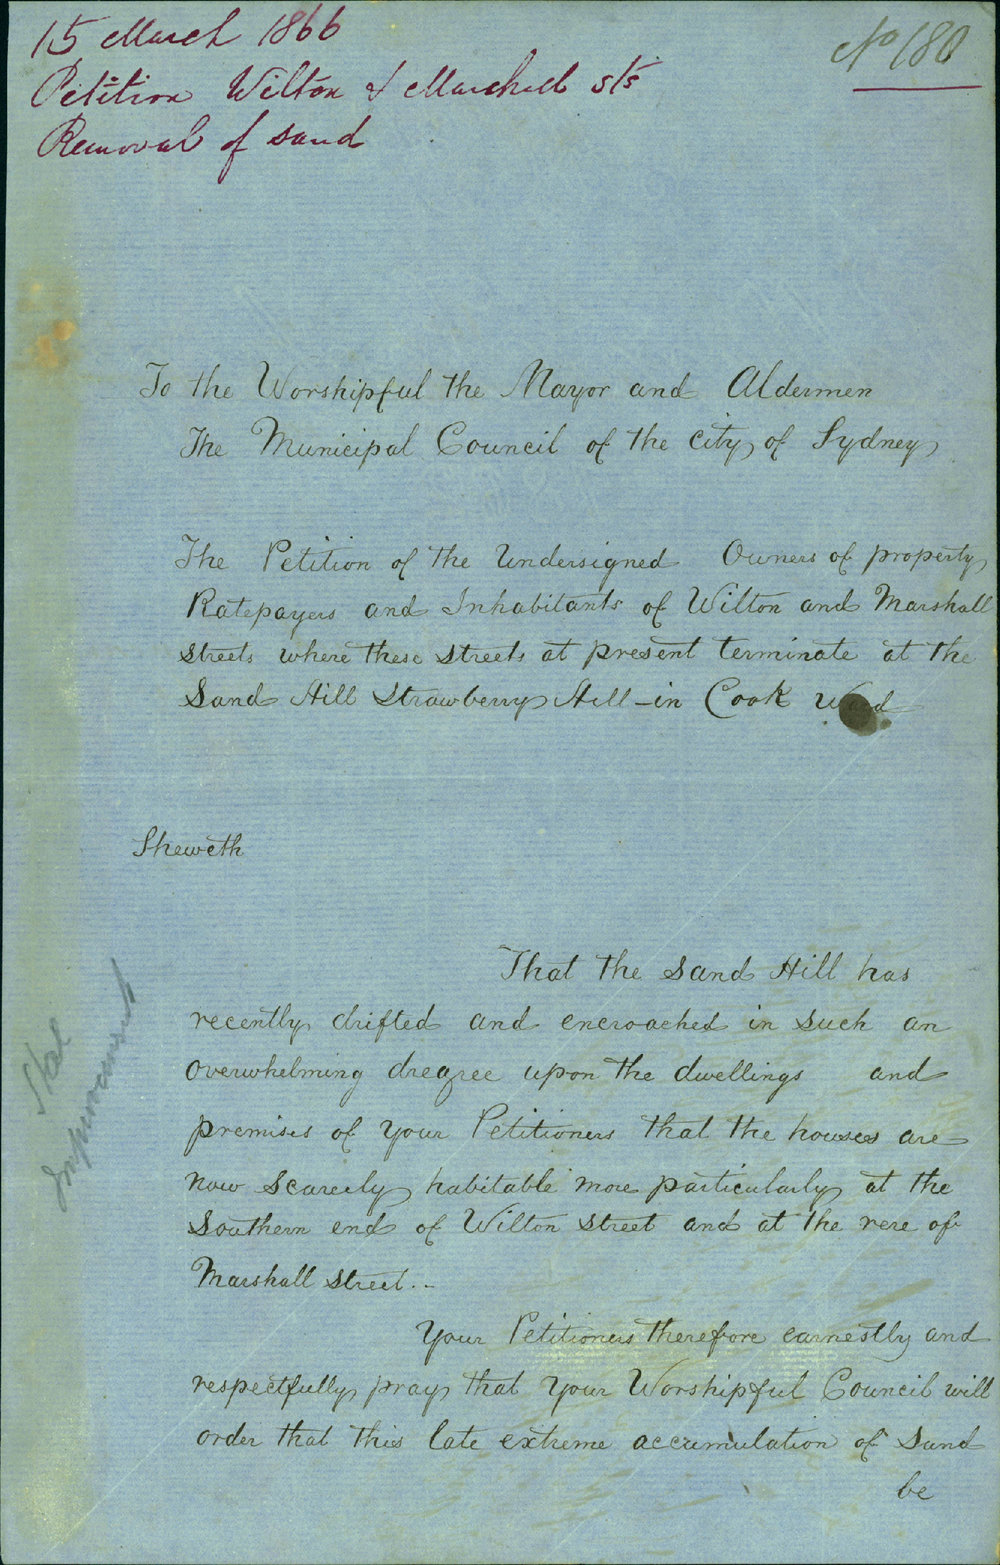 15 March 1866
No 180
Petition Wilton & Marshall Sts
Removal of Sand
To the Worshipful the Mayor and Aldermen
The Municipal Council of the City of Sydney
The Petition of the Undersigned Owners of property
Ratepayers and Inhabitants of Wilton and Marshall
Streets where these Streets at present terminate at the
Sand Hill Strawberry Hill - in Cook Ward
Sheweth
That the Sand Hill has
recently drifted and encroached in such an
overwhelming dregree upon the dwellings and
premises of your Petitioners that the houses are
now scarcely habitable more particularly at the
Southern end of Wilton Street and at the rere of
Marshall Street. -
Your Petitioners therefore earnestly and
respectfully pray that your Worshipful Council will
order that this late extreme accumulation of Sand
be
Improvement